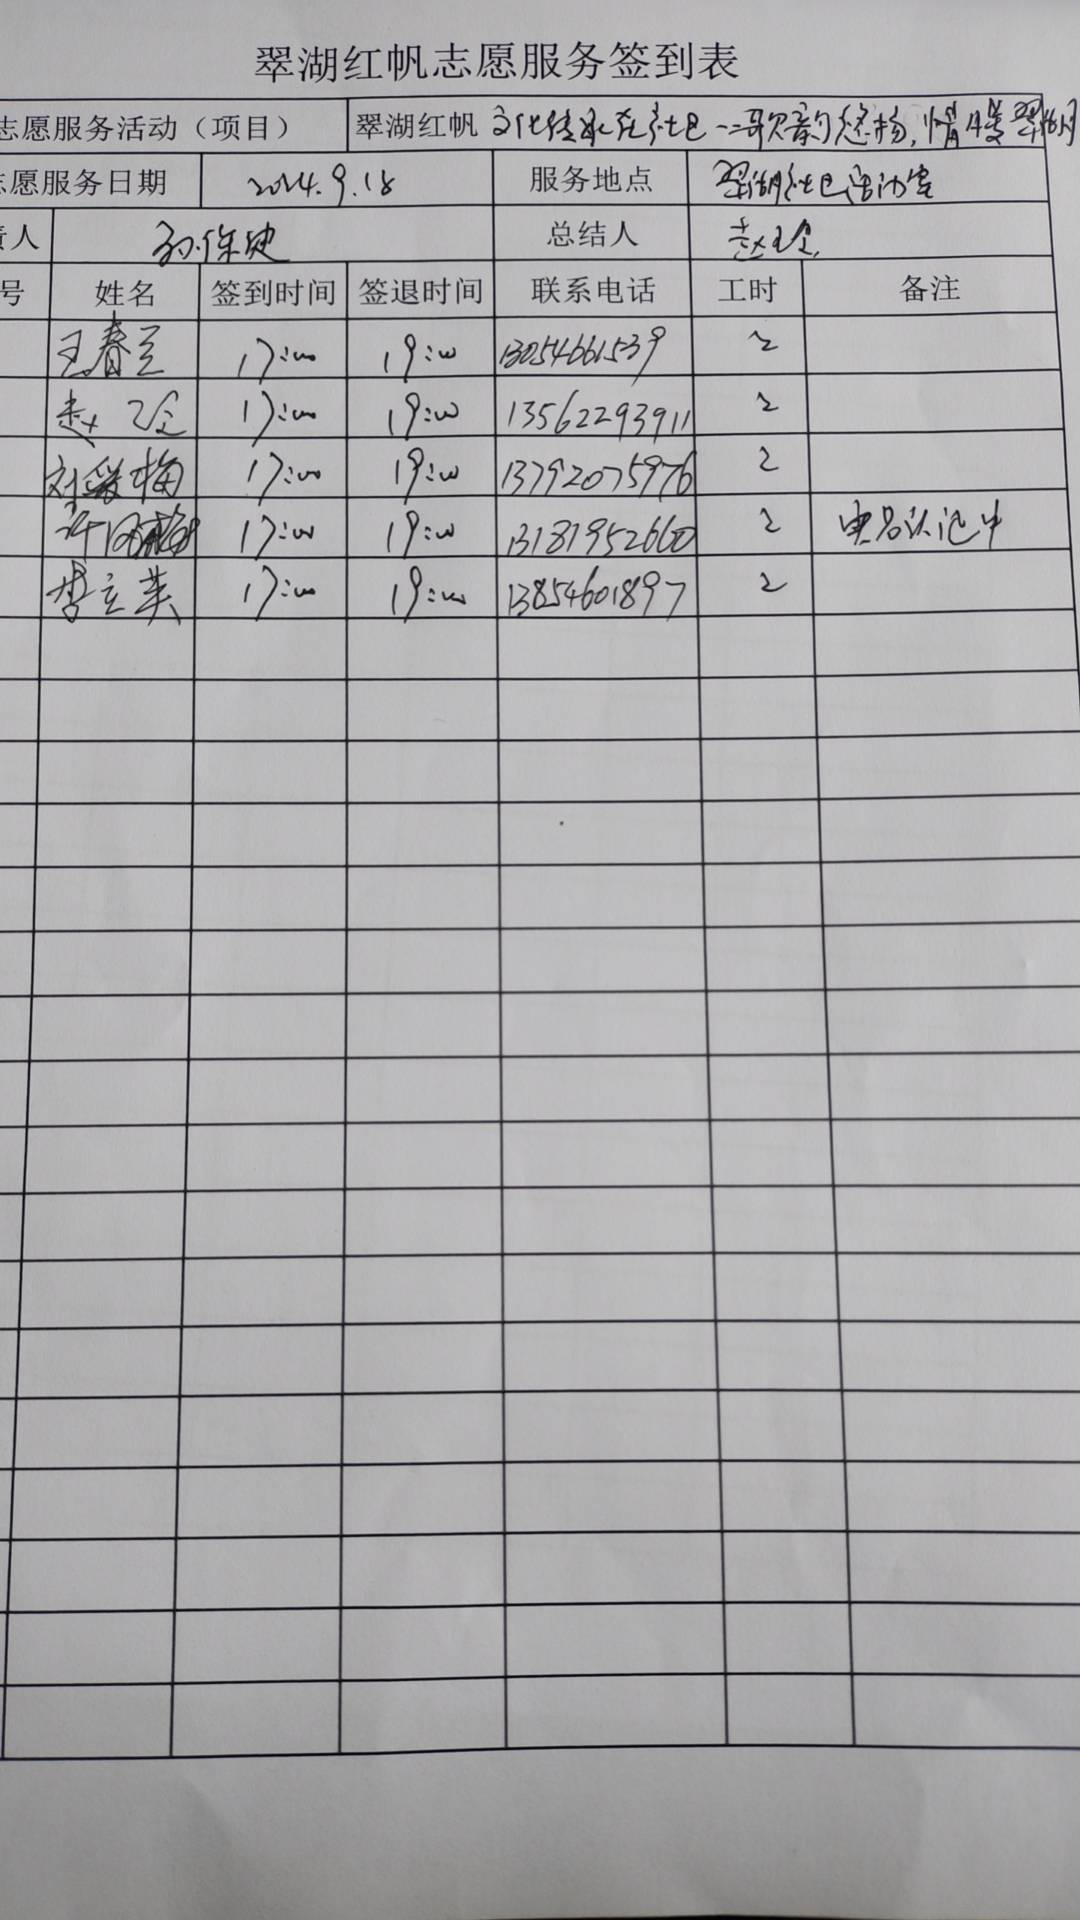 翠湖红帆志愿服务签到表
志愿服务活动（项目） 翠湖红帆 文化传承在社区——歌韵悠扬，情暖翠湖
志愿服务日期 2024.9.18 服务地点 翠湖社区活动室
责人 总结人 赵玉金
号 姓名 签到时间 签退时间 联系电话 工时 备注
王春兰 17:00 19:00 13054661539 2
赵玉金 17:00 19:00 13562293911 2
刘爱梅 17:00 19:00 13792075976 2
17:00 19:00 13181952660 2 实名认证中
李立英 17:00 19:00 13854601897 2